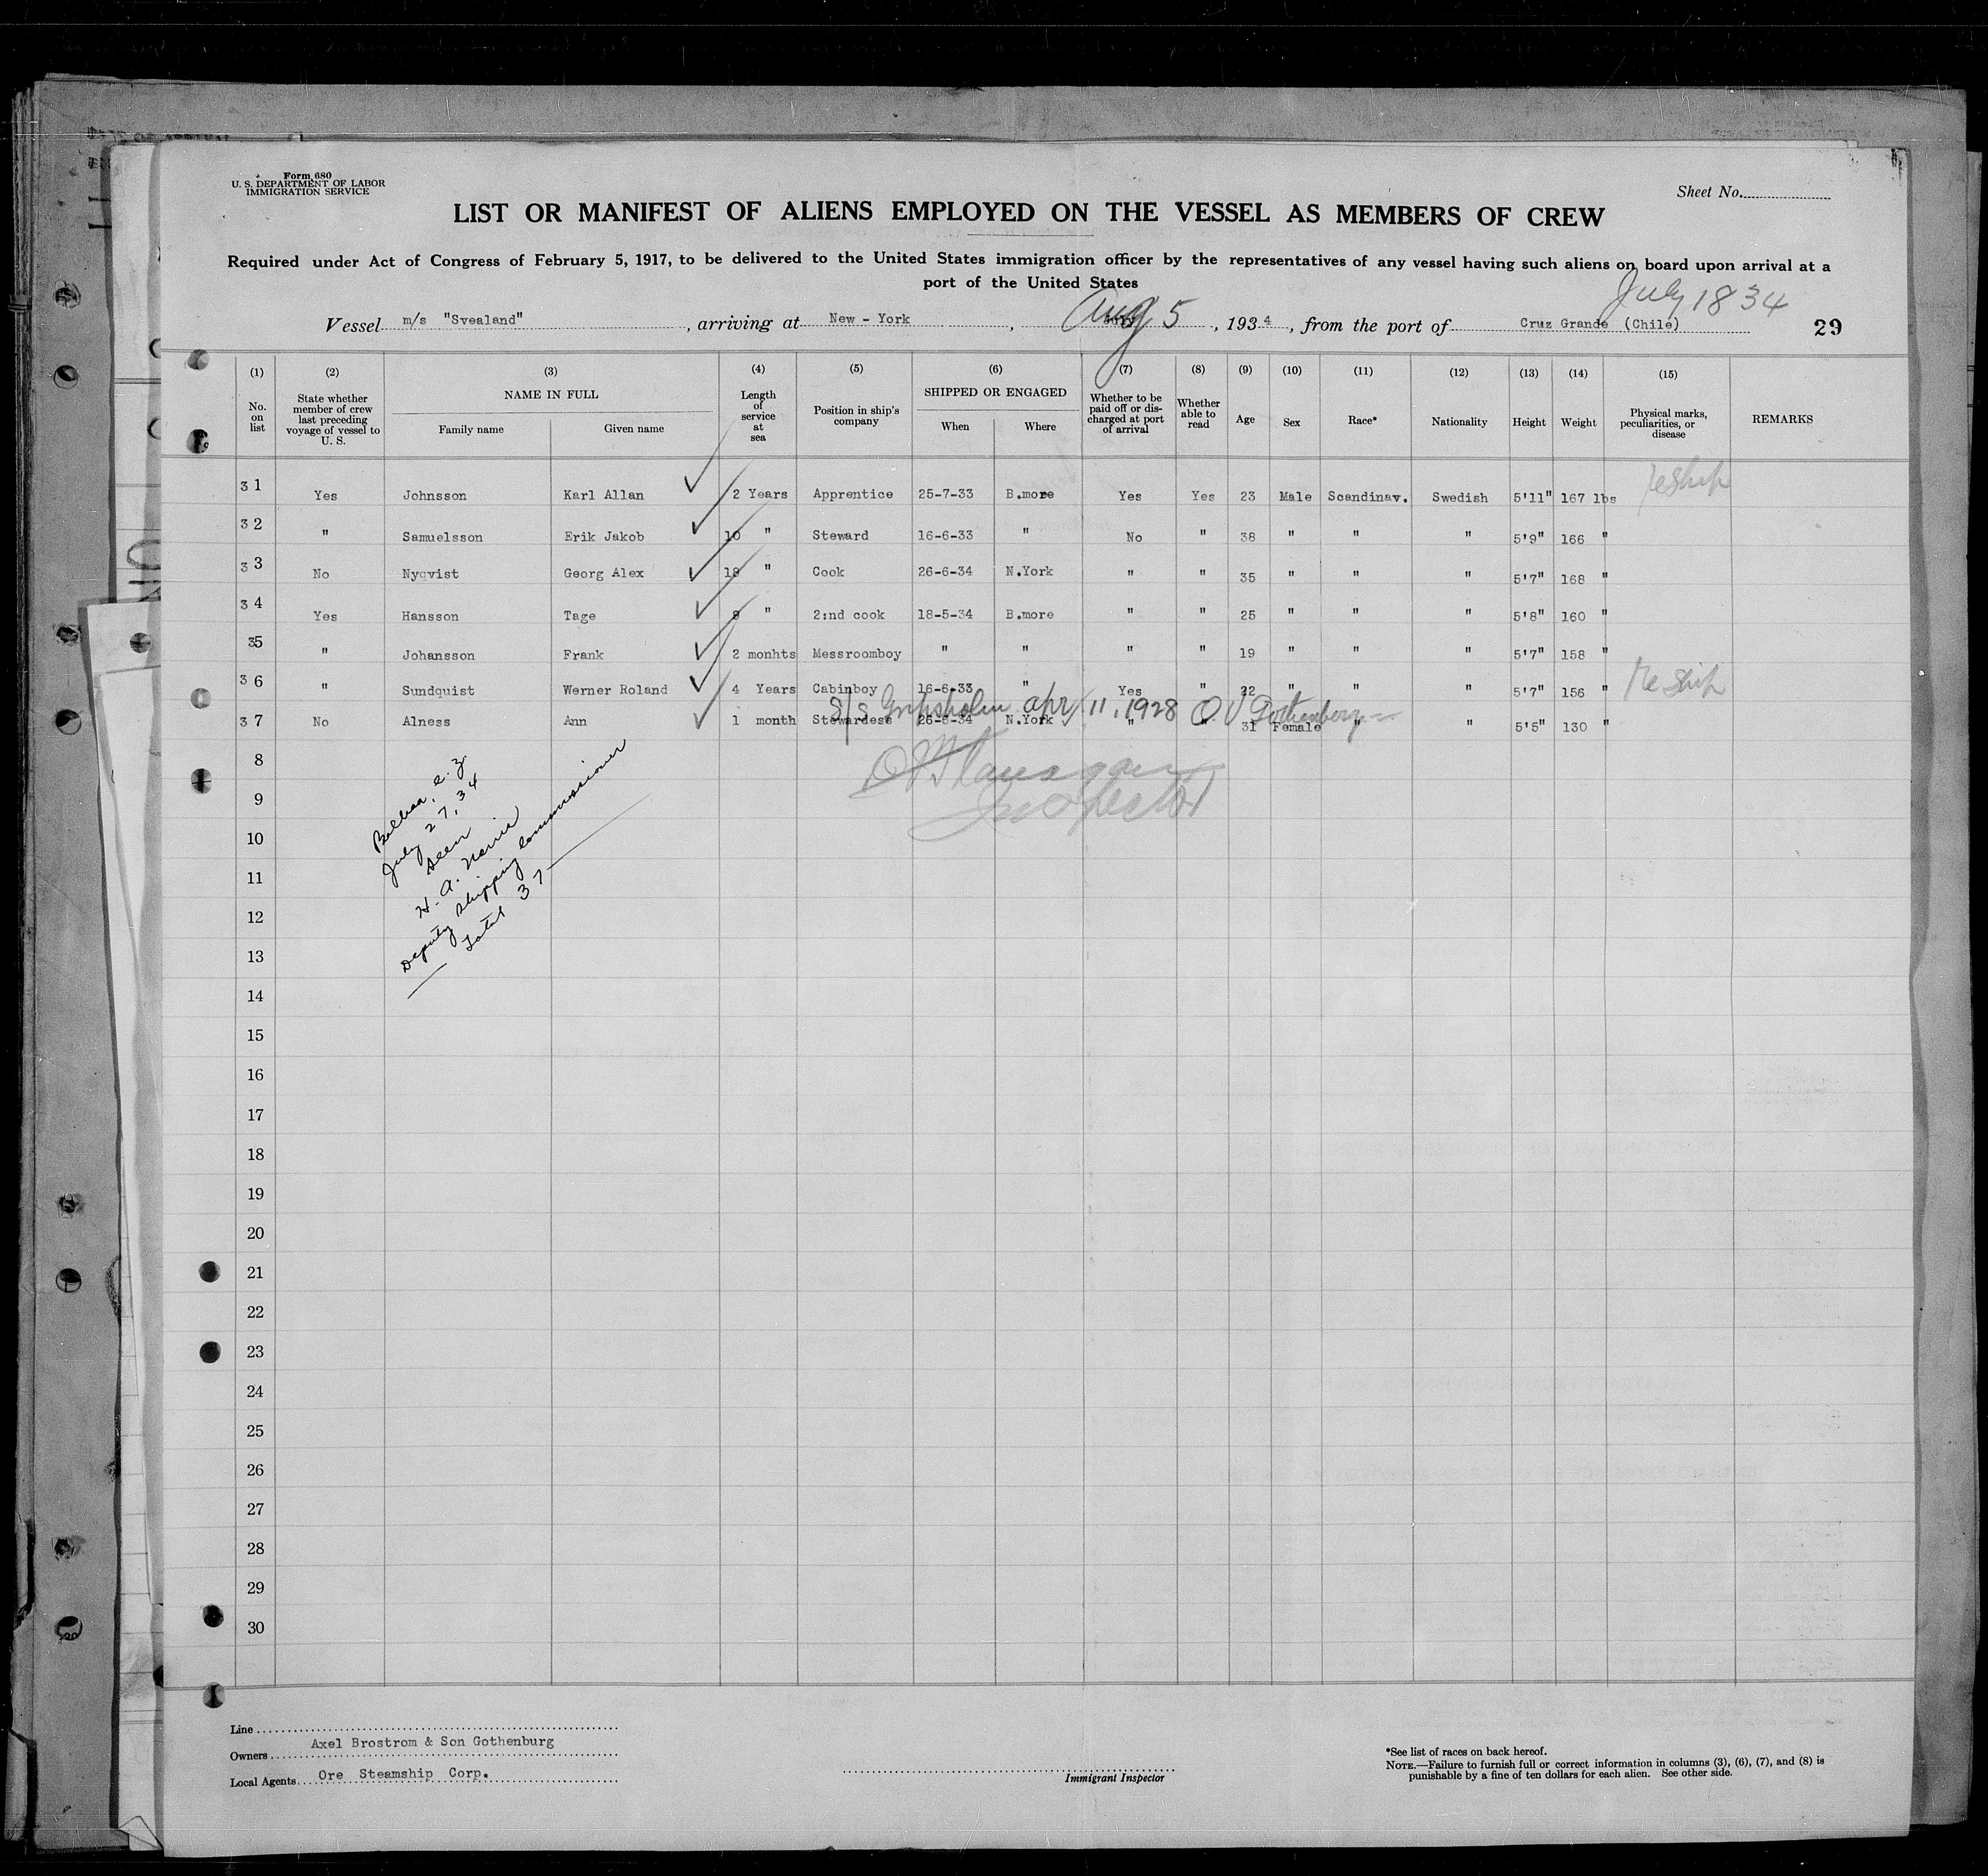 Form 680
U. S. DEPARTMENT OF LABOR
IMMIGRATION SERVICE
Sheet No.
LIST OR MANIFEST OF ALIENS EMPLOYED ON THE VESSEL AS MEMBERS OF CREW
Required under Act of Congress of February 5, 1917, to be delivered to the United States immigration officer by the representatives of any vessel having such aliens on board upon arrival at a
port of the United States
July 18 34
Vessel m/s "Svealand", arriving at New - York, Aug 5, 1934, from the port of Cruz Grande (Chile) 29
(1) (2) (3) (4) (5) (6) (7) (8) (9) (10) (11) (12) (13) (14) (15)
No. on list State whether member of crew last preceding voyage of vessel to U. S. NAME IN FULL Family name Given name Length of service at sea Position in ship's company SHIPPED OR ENGAGED When Where Whether to be paid off or discharged at port of arrival Whether able to read Age Sex Race* Nationality Height Weight Physical marks, peculiarities, or disease REMARKS
31 Yes Johnsson Karl Allan 2 Years Apprentice 25-7-33 B.more Yes Yes 23 Male Scandinav. Swedish 5'11" 167 lbs reship
32 " Samuelsson Erik Jakob 10 " Steward 16-6-33 " No " 38 " " " 5'9" 166 "
33 No Nyqvist Georg Alex 18 " Cook 26-6-34 N.York " " 35 " " " 5'7" 168 "
34 Yes Hansson Tage 9 " 2:nd cook 18-5-34 B.more " " 25 " " " 5'8" 160 "
35 " Johansson Frank 2 monhts Messroomboy " " " " 19 " " " 5'7" 158 "
36 " Sundquist Werner Roland 4 Years Cabinboy 16-6-33 " Yes " 22 " " " 5'7" 156 " Reship
S/S Gripsholm Apr 11, 1928 O. V Gothenberg
37 No Alness Ann 1 month Stewardess 26-6-34 N.York " " 31 Female " " 5'5" 130 "
8
9
10
11
12
13
14
15
16
17
18
19
20
21
22
23
24
25
26
27
28
29
30
Flanagan
Inspector
Balboa, C. Z.
July 27, 34
Seen
Deputy Shipping Commissioner
Total 37
Line
Owners Axel Brostrom & Son Gothenburg
Local Agents Ore Steamship Corp.
Immigrant Inspector
*See list of races on back hereof.
NOTE.—Failure to furnish full or correct information in columns (3), (6), (7), and (8) is
punishable by a fine of ten dollars for each alien. See other side.